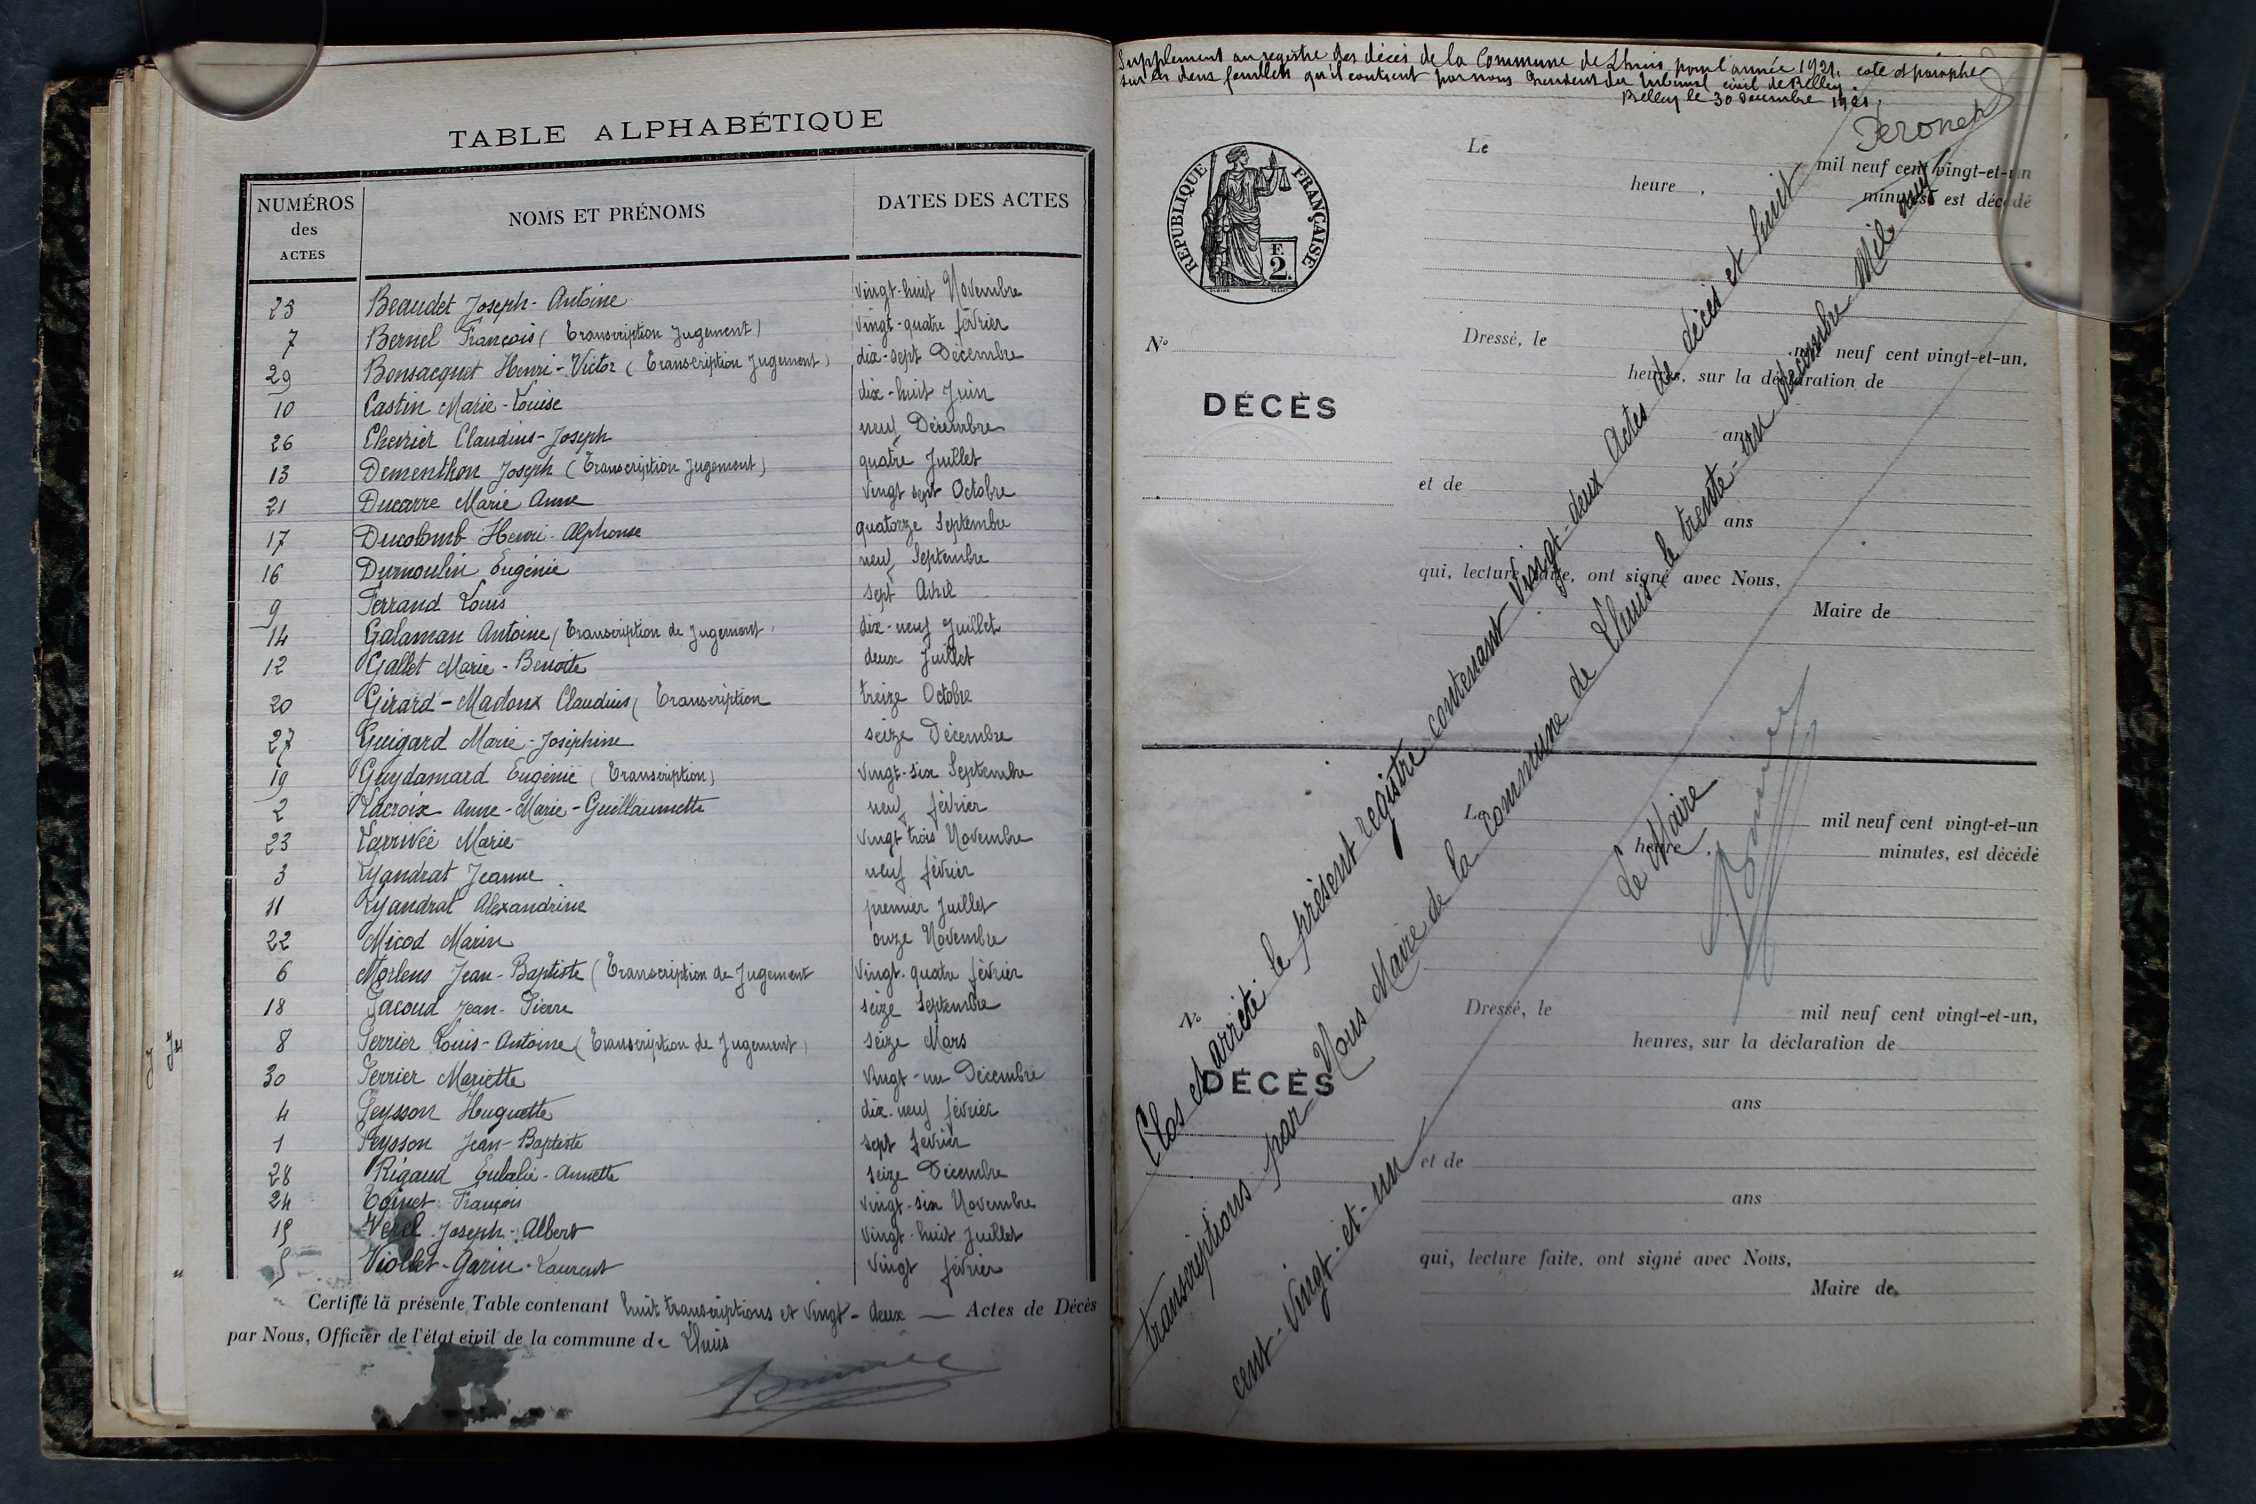 TABLE ALPHABÉTIQUE
NUMÉROS des ACTES NOMS ET PRÉNOMS DATES DES ACTES
25 Beaudet Joseph-Antoine vingt-huit Novembre
7 Bernel François (Transcription Jugement) vingt-quatre février
29 Bonsacquet Henri-Victor (Transcription Jugement) dix-sept Décembre
10 Castin Marie-Louise dix-huit Juin
26 Chevrier Claudius-Joseph neuf Décembre
13 Dementhon Joseph (Transcription Jugement) quatre Juillet
21 Ducarre Marie Anne vingt sept Octobre
17 Ducolomb Henri-Alphonse quatorze Septembre
16 Dumoulin Eugénie neuf Septembre
9 Ferrand Louis sept Avril
14 Galaman Antoine (Transcription de Jugement dix-neuf Juillet
12 Gallet Marie-Benoite deux Juillet
20 Girard-Madoux Claudius (Transcription treize Octobre
27 Guigard Marie-Joséphine seize Décembre
19 Guydamard Eugénie (Transcription) vingt-six Septembre
2 Lacroix Anne-Marie-Guillaumette neuf février
23 Larrivée Marie vingt trois Novembre
3 Lyandrat Jeanne neuf février
11 Lyandrat Alexandrine premier Juillet
22 Micod Marin onze Novembre
6 Morlens Jean-Baptiste (Transcription de Jugement vingt-quatre février
18 Pacoud Jean-Pierre seize Septembre
8 Perrier Louis-Antoine (Transcription de Jugement) seize Mars
30 Perrier Mariette vingt-un Décembre
4 Peysson Huguette dix-neuf février
1 Peysson Jean-Baptiste sept février
28 Rigaud Eulalie-Annette seize Décembre
24 Toinet François vingt-six Novembre
15 Verel Joseph-Albert vingt-huit Juillet
5 Viollet-Garin-Laurent vingt février
Certifié la présente Table contenant huit transcriptions et vingt-deux — Actes de Décès
par Nous, Officier de l'état civil de la commune de Lhuis
Supplément au registre des décès de la Commune de Lhuis pour l'année 1921, coté et paraphé
sur les deux feuillets qu'il contient par nous Président du tribunal civil de Belley.
Belley le 30 Décembre 1921.
RÉPUBLIQUE FRANÇAISE
F.
2.
Le mil neuf cent vingt-et-un
heure minutes est décédé
N°
Dressé, le mil neuf cent vingt-et-un,
heures, sur la déclaration de
DÉCÈS
ans
et de
ans
qui, lecture faite, ont signé avec Nous,
Maire de
Le mil neuf cent vingt-et-un
heure minutes, est décédé
N°
Dressé, le mil neuf cent vingt-et-un,
heures, sur la déclaration de
DÉCÈS
ans
et de
ans
qui, lecture faite, ont signé avec Nous,
Maire de
Clos et arrêté le présent registre contenant vingt-deux Actes de décès et huit
transcriptions par Nous Maire de la Commune de Lhuis, le trente-un décembre mil neuf
cent-vingt-et-un
Le Maire